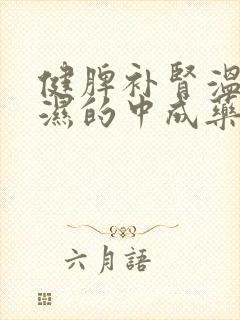 健脾补肾温
濕的中成藥
六月語